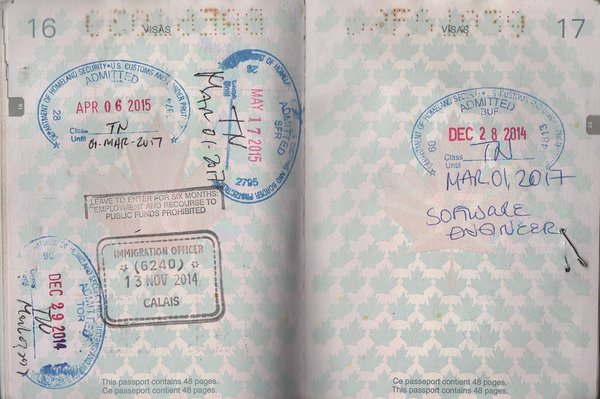 16
VISAS
DEPARTMENT OF HOMELAND SECURITY • U.S. CUSTOMS AND BORDER PROTECTION
ADMITTED
28
APR 06 2015
Class TN
Until 01-MAR-2017
ADMITTED
SFR
MAY 17 2015
2795
TN
MAR 01 2017
LEAVE TO ENTER FOR SIX MONTHS:
EMPLOYMENT AND RECOURSE TO
PUBLIC FUNDS PROHIBITED
IMMIGRATION OFFICER
(6240)
13 NOV 2014
CALAIS
ADMITTED
TOR
DEC 29 2014
TN
This passport contains 48 pages.
Ce passeport contient 48 pages.
VISAS
17
DEPARTMENT OF HOMELAND SECURITY • U.S. CUSTOMS AND BORDER
ADMITTED
BUF
DEC 28 2014
Class TN
Until
MAR 01, 2017
SOFTWARE
ENGINEER
This passport contains 48 pages.
Ce passeport contient 48 pages.